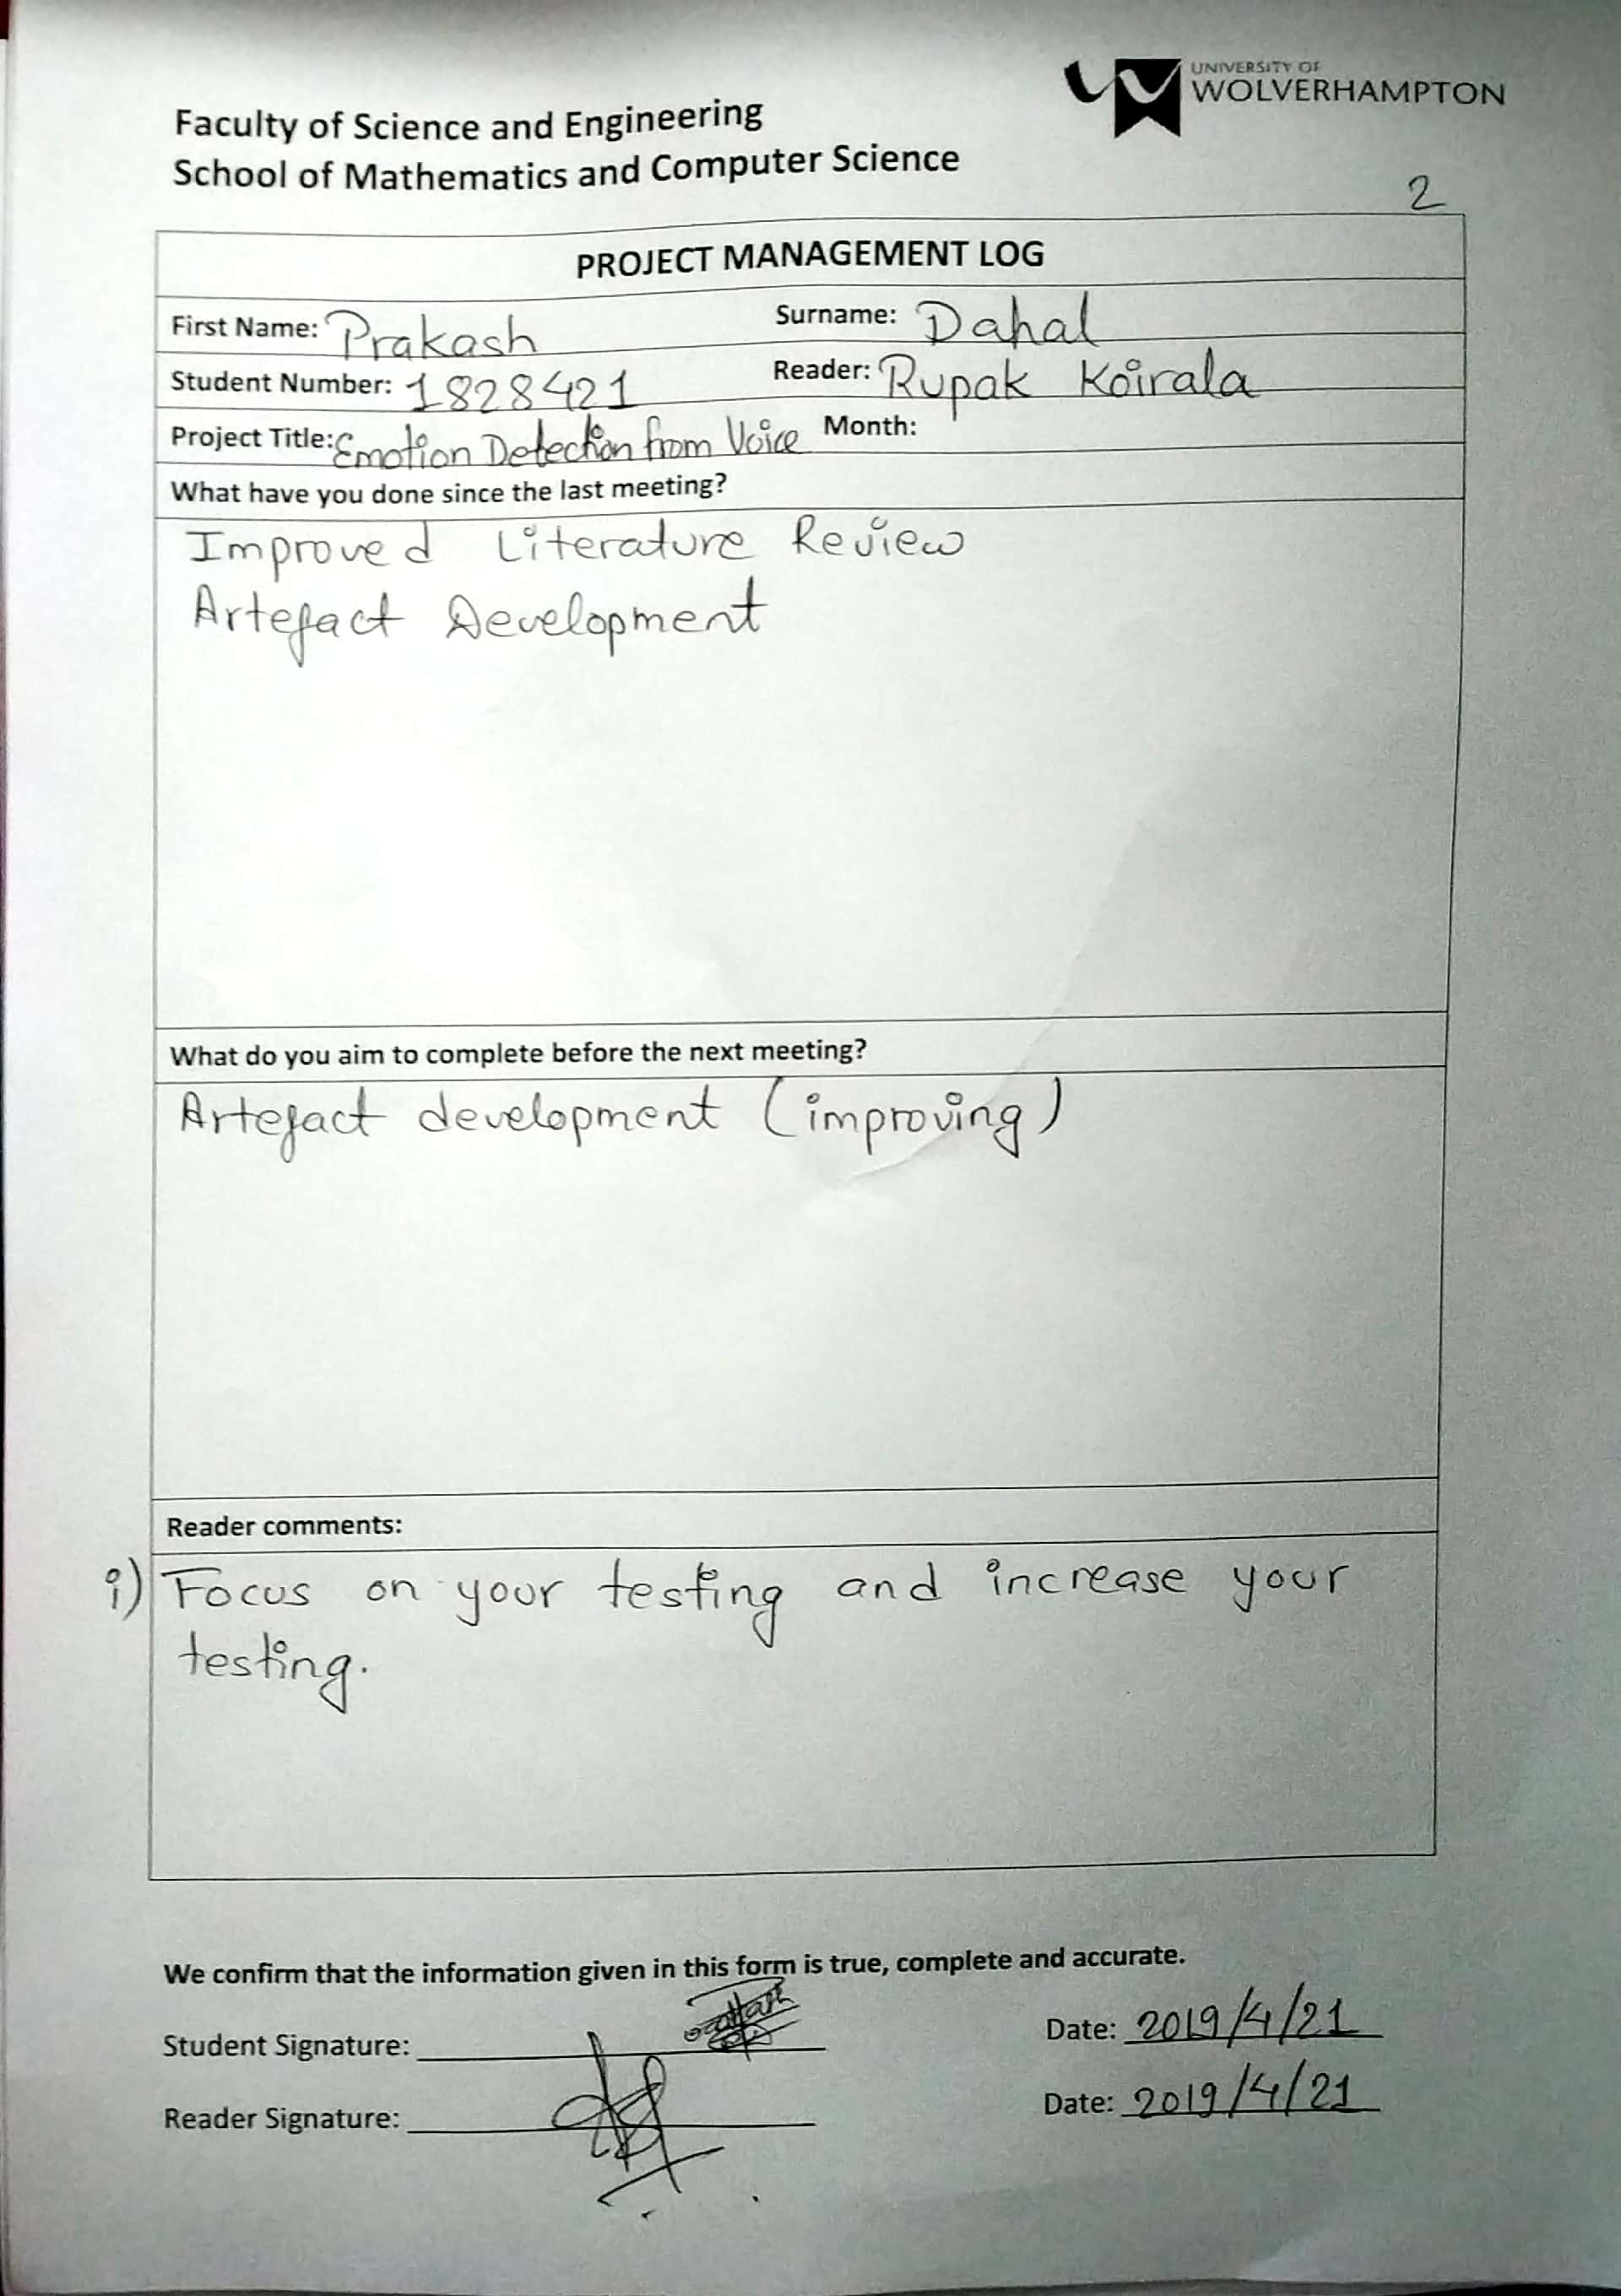 UNIVERSITY OF
WOLVERHAMPTON
Faculty of Science and Engineering
School of Mathematics and Computer Science
2
PROJECT MANAGEMENT LOG
First Name: Prakash Surname: Dahal
Student Number: 1828421 Reader: Rupak Koirala
Project Title: Emotion Detection from Voice Month:
What have you done since the last meeting?
Improved Literature Review
Artefact Development
What do you aim to complete before the next meeting?
Artefact development (improving)
Reader comments:
i) Focus on your testing and increase your
testing.
We confirm that the information given in this form is true, complete and accurate.
Student Signature: Date: 2019/4/21
Reader Signature: Date: 2019/4/21